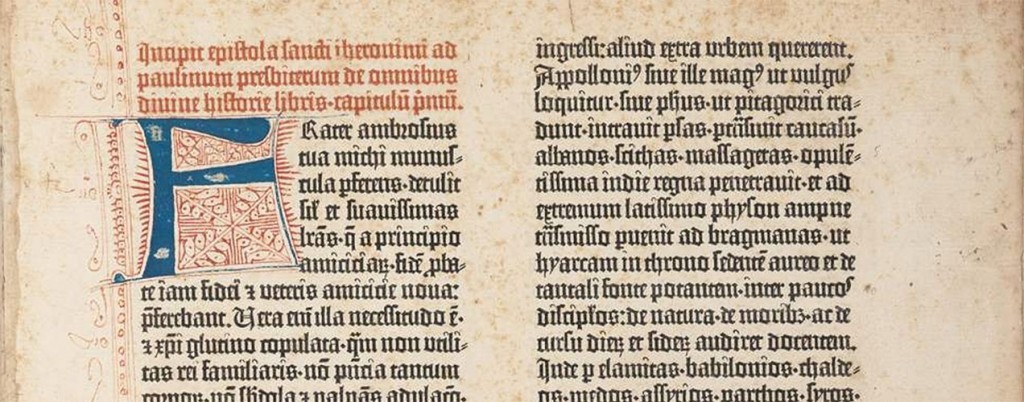 Incipit epistola sancti iheronimi ad
paulinum presbiterum de omnibus
divine historie libris·capitulū p̄mū.
FRater ambrosius
tua michi munus⸗
cula ꝑferens·detulit
sil̄ et suavissimas
l̄ras·q̄ a principio
amiciciaꝝ·fidē ꝓba⸗
te iam fidei ⁊ veteris amicicie nova:
p̄ferebant. Vera em̄ illa necessitudo ē·
⁊ xp̄i glutino copulata·q̄m non utili⸗
tas rei familiaris·nō p̄ncia tantum
corpoꝝ·nō s̄bdola ⁊ palpās adulacō·
ingressi: aliud extra urbem quererent.
Appolloniꝰ sive ille magꝰ ut vulgus
loquitur·sive ph̄us·ut pitagorici tra⸗
dunt·intravit ꝑsas·ptrāsivit caucasū·
albanos·scithas·massagetas·opulē⸗
tissima indie regna penetravit·et ad
extremum latissimo physon ampne
trāsmisso ꝑvenit ad bragmanas·ut
hyarcam in throno sedentē aureo et de
tantali fonte potantem·inter paucos
discipl̄os: de natura·de moribꝫ·ac de
cursu dieꝝ et sideꝝ audiret docentem.
Inde ꝑ elamitas·babilonios·chalde⸗
os·medos·assyrios·parthos·syros·